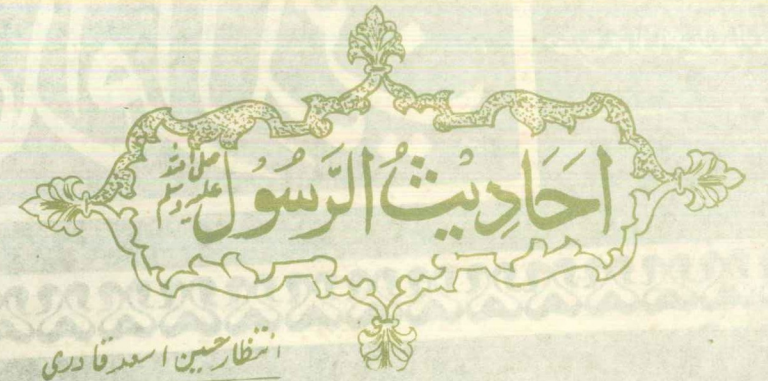 احَادِيثُ الرَّسُوْل صلی اللہ علیہ وسلم
انتظار حسین اسعد قادری